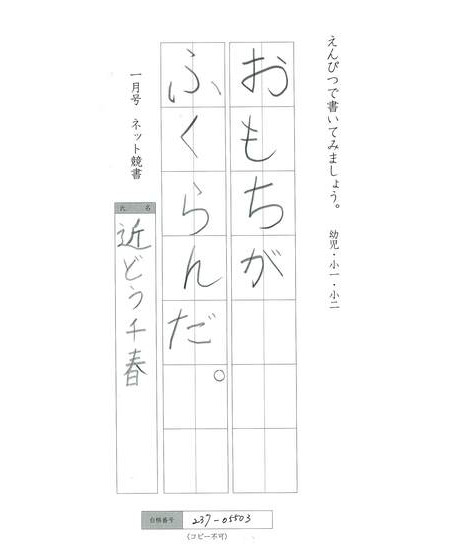 えんぴつで書いてみましょう。 幼児・小一・小二
おもちが
ふくらんだ。
一月号 ネット競書
氏名
近どう千春
台帳番号 237-05503
(コピー不可)